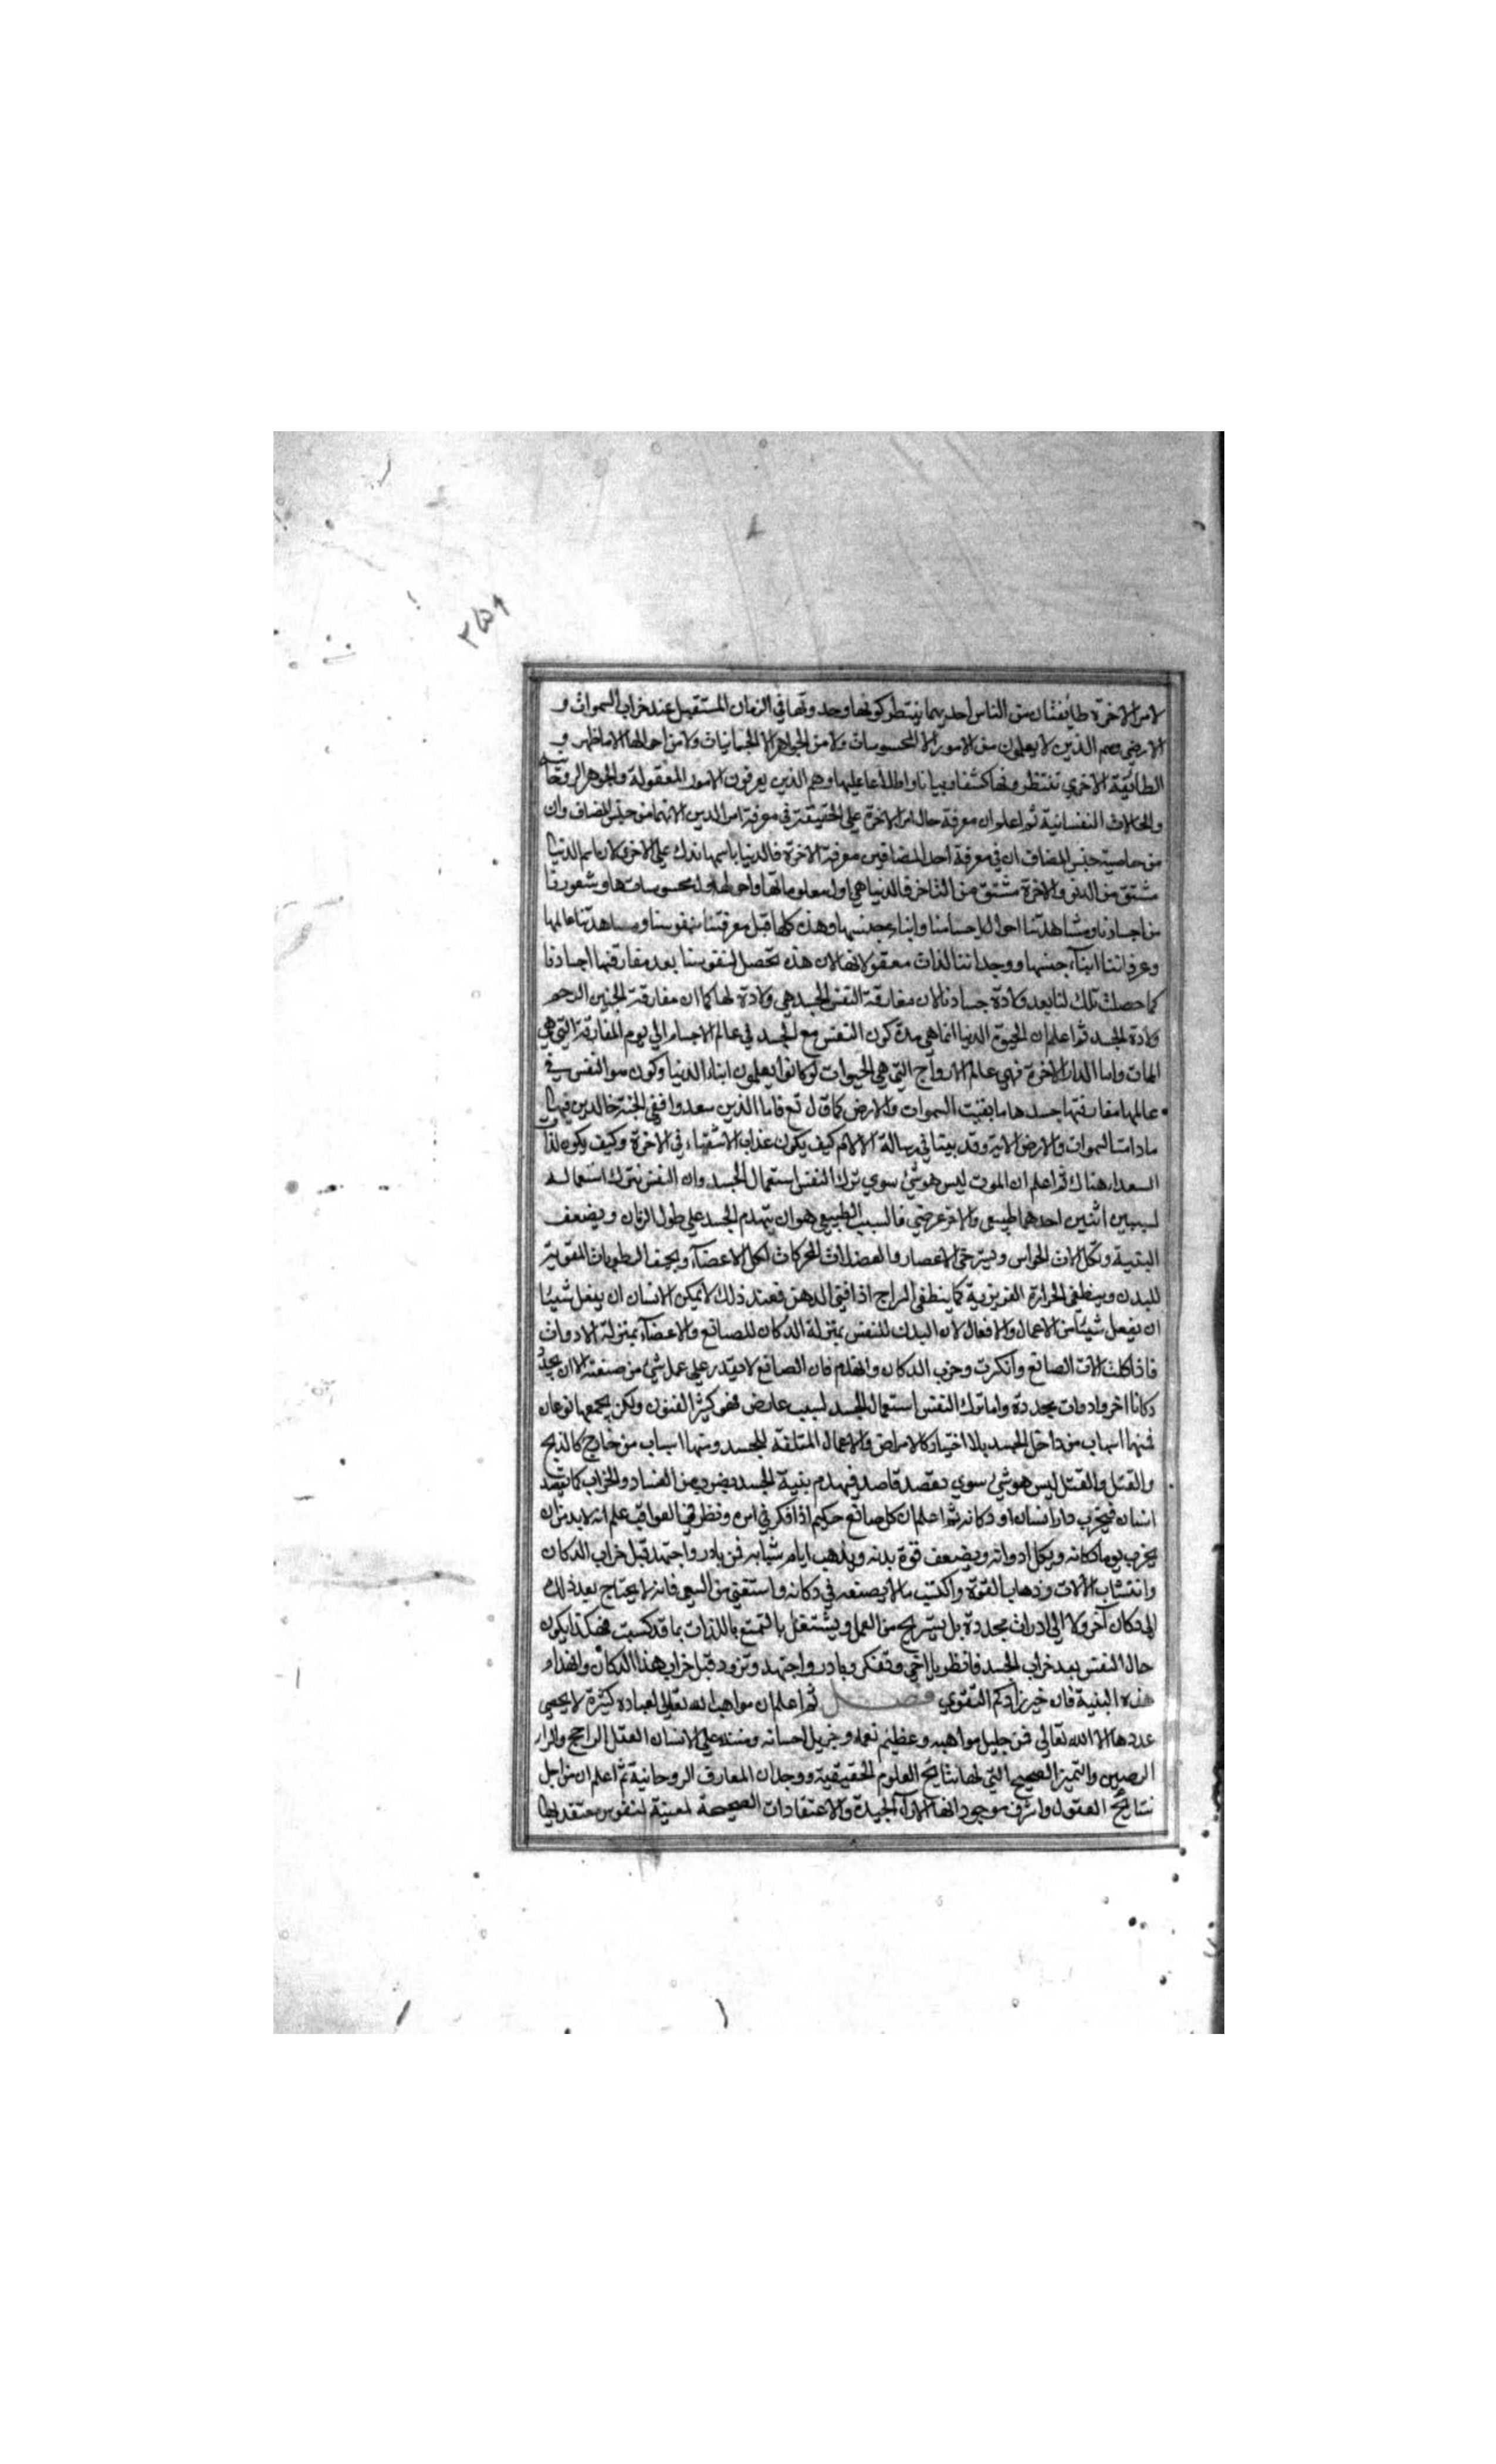 ٣٥٩
لامر الاخرة طايفتان من الناس احديهما ينتظر كونها وحدوثها في الزمان المستقبل عند خراب السموات و
الارض وهم الذين لا يعلمون من الامور الا المحسوسات ولا من الجواهر الا الجسمانيات ولا من احوالها الا ما ظهر و
الطائفة الاخري تنتظرونها كشفا وبيانا واطلاعا عليها وهم الذين يعرفون الامور المعقولة والجوهر الروحانية
والحالات النفسانية ثم اعلموا ان معرفة حال امر الاخرة علي الحقيقة في معرفة امر الدين لانهما من جنس المضاف وان
من خاصية جنس المضاف ان في معرفة احد المضافين معرفة الاخرة فالدنيا باسمها تدل علي الاخري لان اسم الدنيا
مشتق من الدنو والاخرة مشتق من التاخر فالدنيا هي اول معلوماتها واحوالها ول محسوساتها وشعورنا
من اجسادنا ومشاهدتنا احوال احساسنا وابناء جنسها وهذه كلها قبل معرفتنا بنفوسنا ومشاهدتنا عالمها
وعرفاننا ابناء جنسها ووجداننا لذات معقولاتها لان هذه تحصل لنفوسنا بعد مفارقتها اجسادنا
كما حصلت تلك لنا بعد ولادة جسادنا لان مفارقة النفس الجسد هي ولادة لها كما ان مفارقة الجنين الرحم
ولادة الجسد ثم اعلم ان الحيوة الدنيا انما هي مدة كون النفس مع الجسد في عالم الاجسام الي يوم المفارقة التي هي
الممات واما الدار الاخرة فهي عالم الارواح التي هي الحيوات لو كانوا يعلمون ابناء الدنيا وكون النفس في
عالمها مفارقتها جسدها ما بقيت السموات والارض كما قال تع فاما الذين سعدوا ففي الجنة خالدين فيها
مادامت السموات والارض الاية وقد بينا في رسالة الالام كيف يكون عذاب الاشقياء في الاخرة وكيف يكون لذات
السعداء هناك ثم اعلم ان الموت ليس هو شئ سوي ترك النفس استعمال الجسد وان النفس تترك استعماله
لسببين اثنين احدهما طبيعي والاخر عرضي فالسبب الطبيعي هو ان يتهدم الجسد علي طول الزمان ويضعف
البنية وتكل الات الحواس وتسترخي الاعصاب والعضلات المحركات لكل الاعضاء ويجف الرطوبات المقوية
للبدن وينطفي الحرارة الغريزية كما ينطفي السراج اذا فني الدهن فعند ذلك لا يمكن الانسان ان يفعل شيئا
ان يفعل شيئا من الاعمال والافعال لان البدن للنفس بمنزلة الدكان للصانع والاعضاء بمنزلة الادوات
فاذا كلت الات الصانع وانكسرت وخرب الدكان وانهدم فان الصانع لا يقدر علي عمل شئ من صنعته الا ان يجدد
دكانا اخر وادوات مجددة واما ترك النفس استعمال الجسد لسبب عارض فهو كثير الفنون ولكن يجمعها نوعان
فمنها اسباب من داخل الجسد بلا اختيار كالامراض والاعمال المتلفة للجسد ومنها اسباب من خارج كالذبح
والقتل والقتل ليس هو شئ سوي بقصد قاصد فيهدم بنية الجسد بضروب من الفساد والخراب كما يقصد
انسان فيخرب دار انسان او دكانه ثم اعلم ان كل صانع حكيم اذا فكر في امره ونظر في العواقب علم انه لا بد من ان
يخرب يوما دكانه ويكل ادواته ويضعف قوة بدنه ويذهب ايام شبابه فمن بادر واجتهد قبل خراب الدكان
وانتساب الالات وذهاب القوة واكتسب مالا بصنعه في دكانه واستغني من السعي فانه لا يحتاج بعد ذلك
الي دكان آخر ولا الي ادوات مجددة بل يستريح من العمل ويشتغل بالتمتع باللذات بما قد كسبت فهكذا يكون
حال النفس بعد خراب الجسد فانظر يا اخي وتفكر وبادر واجتهد وتزود قبل خراب هذا الدكان وانهدام
هذه البنية فان خير زادكم التقوي فصل ثم اعلم ان مواهب الله تعالي لعباده كثيرة لا يحصي
عددها الا الله تعالي فمن جليل مواهبه وعظيم نعمه وجزيل احسانه ومننه علي الانسان العقل الراجح والراى
الرصين والتميز الصحيح التي لها نتائج العلوم الحقيقية ووجدان المعارف الروحانية ثم اعلم ان من اجل
نتائج العقول واشرف موجوداتها الآراء الجيدة والاعتقادات الصحيحة لمعينة لنفوس معتقديها